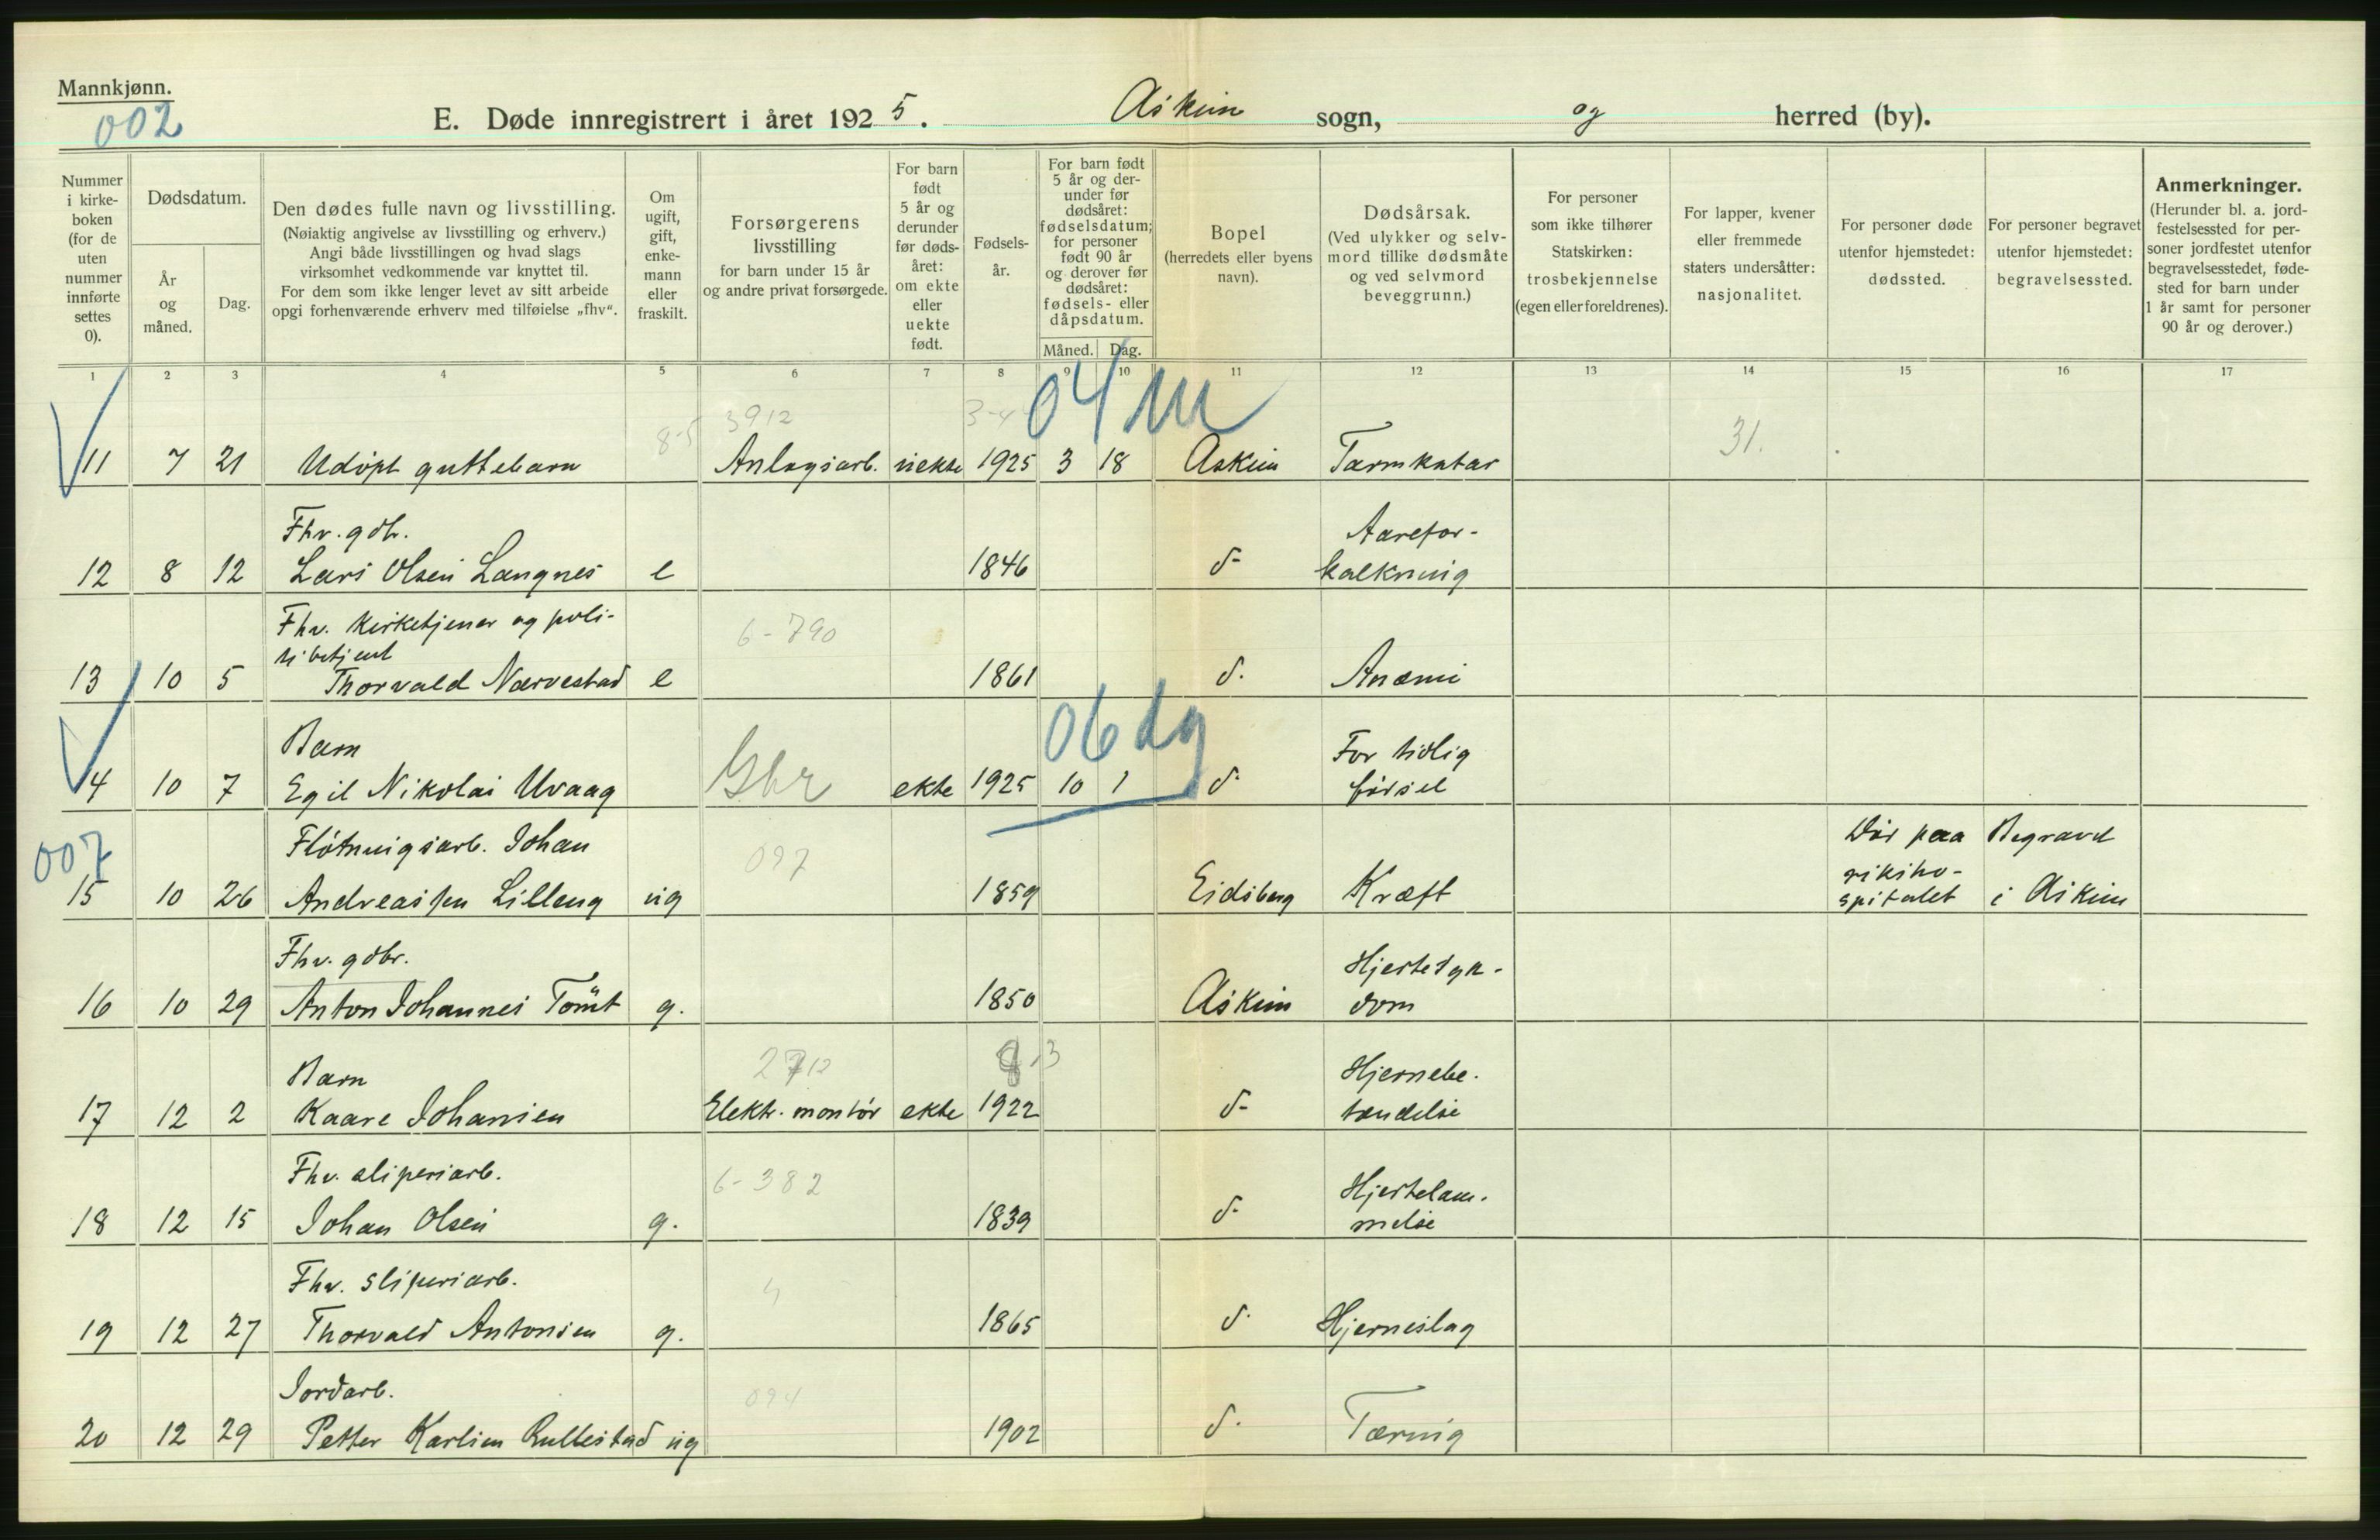 Mannkjønn.
002
E. Døde innregistrert i året 1925. Askim sogn, og herred (by).
Nummer i kirkeboken (for de uten nummer innførte settes 0).
Dødsdatum.
År og måned.
Dag.
Den dødes fulle navn og livsstilling.
(Nøiaktig angivelse av livsstilling og erhverv.)
Angi både livsstillingen og hvad slags
virksomhet vedkommende var knyttet til.
For dem som ikke lenger levet av sitt arbeide
opgi forhenværende erhverv med tilføielse „fhv“.
Om ugift, gift, enkemann eller fraskilt.
Forsørgerens livsstilling
for barn under 15 år
og andre privat forsørgede.
For barn født 5 år og derunder før dødsåret: om ekte eller uekte født.
Fødselsår.
For barn født 5 år og derunder før dødsåret: fødselsdatum; for personer født 90 år og derover før dødsåret: fødsels- eller dåpsdatum.
Måned. Dag.
Bopel
(herredets eller byens navn).
Dødsårsak.
(Ved ulykker og selvmord tillike dødsmåte og ved selvmord beveggrunn.)
For personer som ikke tilhører Statskirken: trosbekjennelse (egen eller foreldrenes).
For lapper, kvener eller fremmede staters undersåtter: nasjonalitet.
For personer døde utenfor hjemstedet: dødssted.
For personer begravet utenfor hjemstedet: begravelsessted.
Anmerkninger.
(Herunder bl. a. jordfestelsessted for personer jordfestet utenfor begravelsesstedet, fødested for barn under 1 år samt for personer 90 år og derover.)
1 2 3 4 5 6 7 8 9 10 11 12 13 14 15 16 17
8-5 3912 3-4 04 m 31.
11 7 21 Udöpt guttebarn Anlægsarb. uekte 1925 3 18 Askim Tarmkatar
Fhv. gdbr. Aarefor-
12 8 12 Lars Olsen Langnes e 1846 d- kalkning
Fhv. kirketjener og poli- 6-790
tibetjent
13 10 5 Thorvald Nærvestad e 1861 d. Anæmi
06 dg
Barn Gbr For tidlig
14 10 7 Egil Nikolai Uvaag ekte 1925 10 1 d- födsel
007 Flötningsarb. Johan 097 Död paa Begravd
rikiho-
15 10 26 Andreassen Lilleng ug 1859 Eidsberg Kræft spitalet i Askim
Fhv. gdbr. Hjertesyk-
16 10 29 Anton Johannes Tömt g. 1850 Askim dom
Barn 2712 Hjernebe-
17 12 2 Kaare Johansen Elektr. montör ekte 1922 d- tændelse
Fhv. sliperiarb. 6-382 Hjertelam-
18 12 15 Johan Olsen g. 1839 d- melse
Fhv. sliperiarb.
19 12 27 Thorvald Antonsen g. 1865 d. Hjerneslag
Jordarb. 094
20 12 29 Petter Karlsen Rullestad ug 1902 d. Tæring